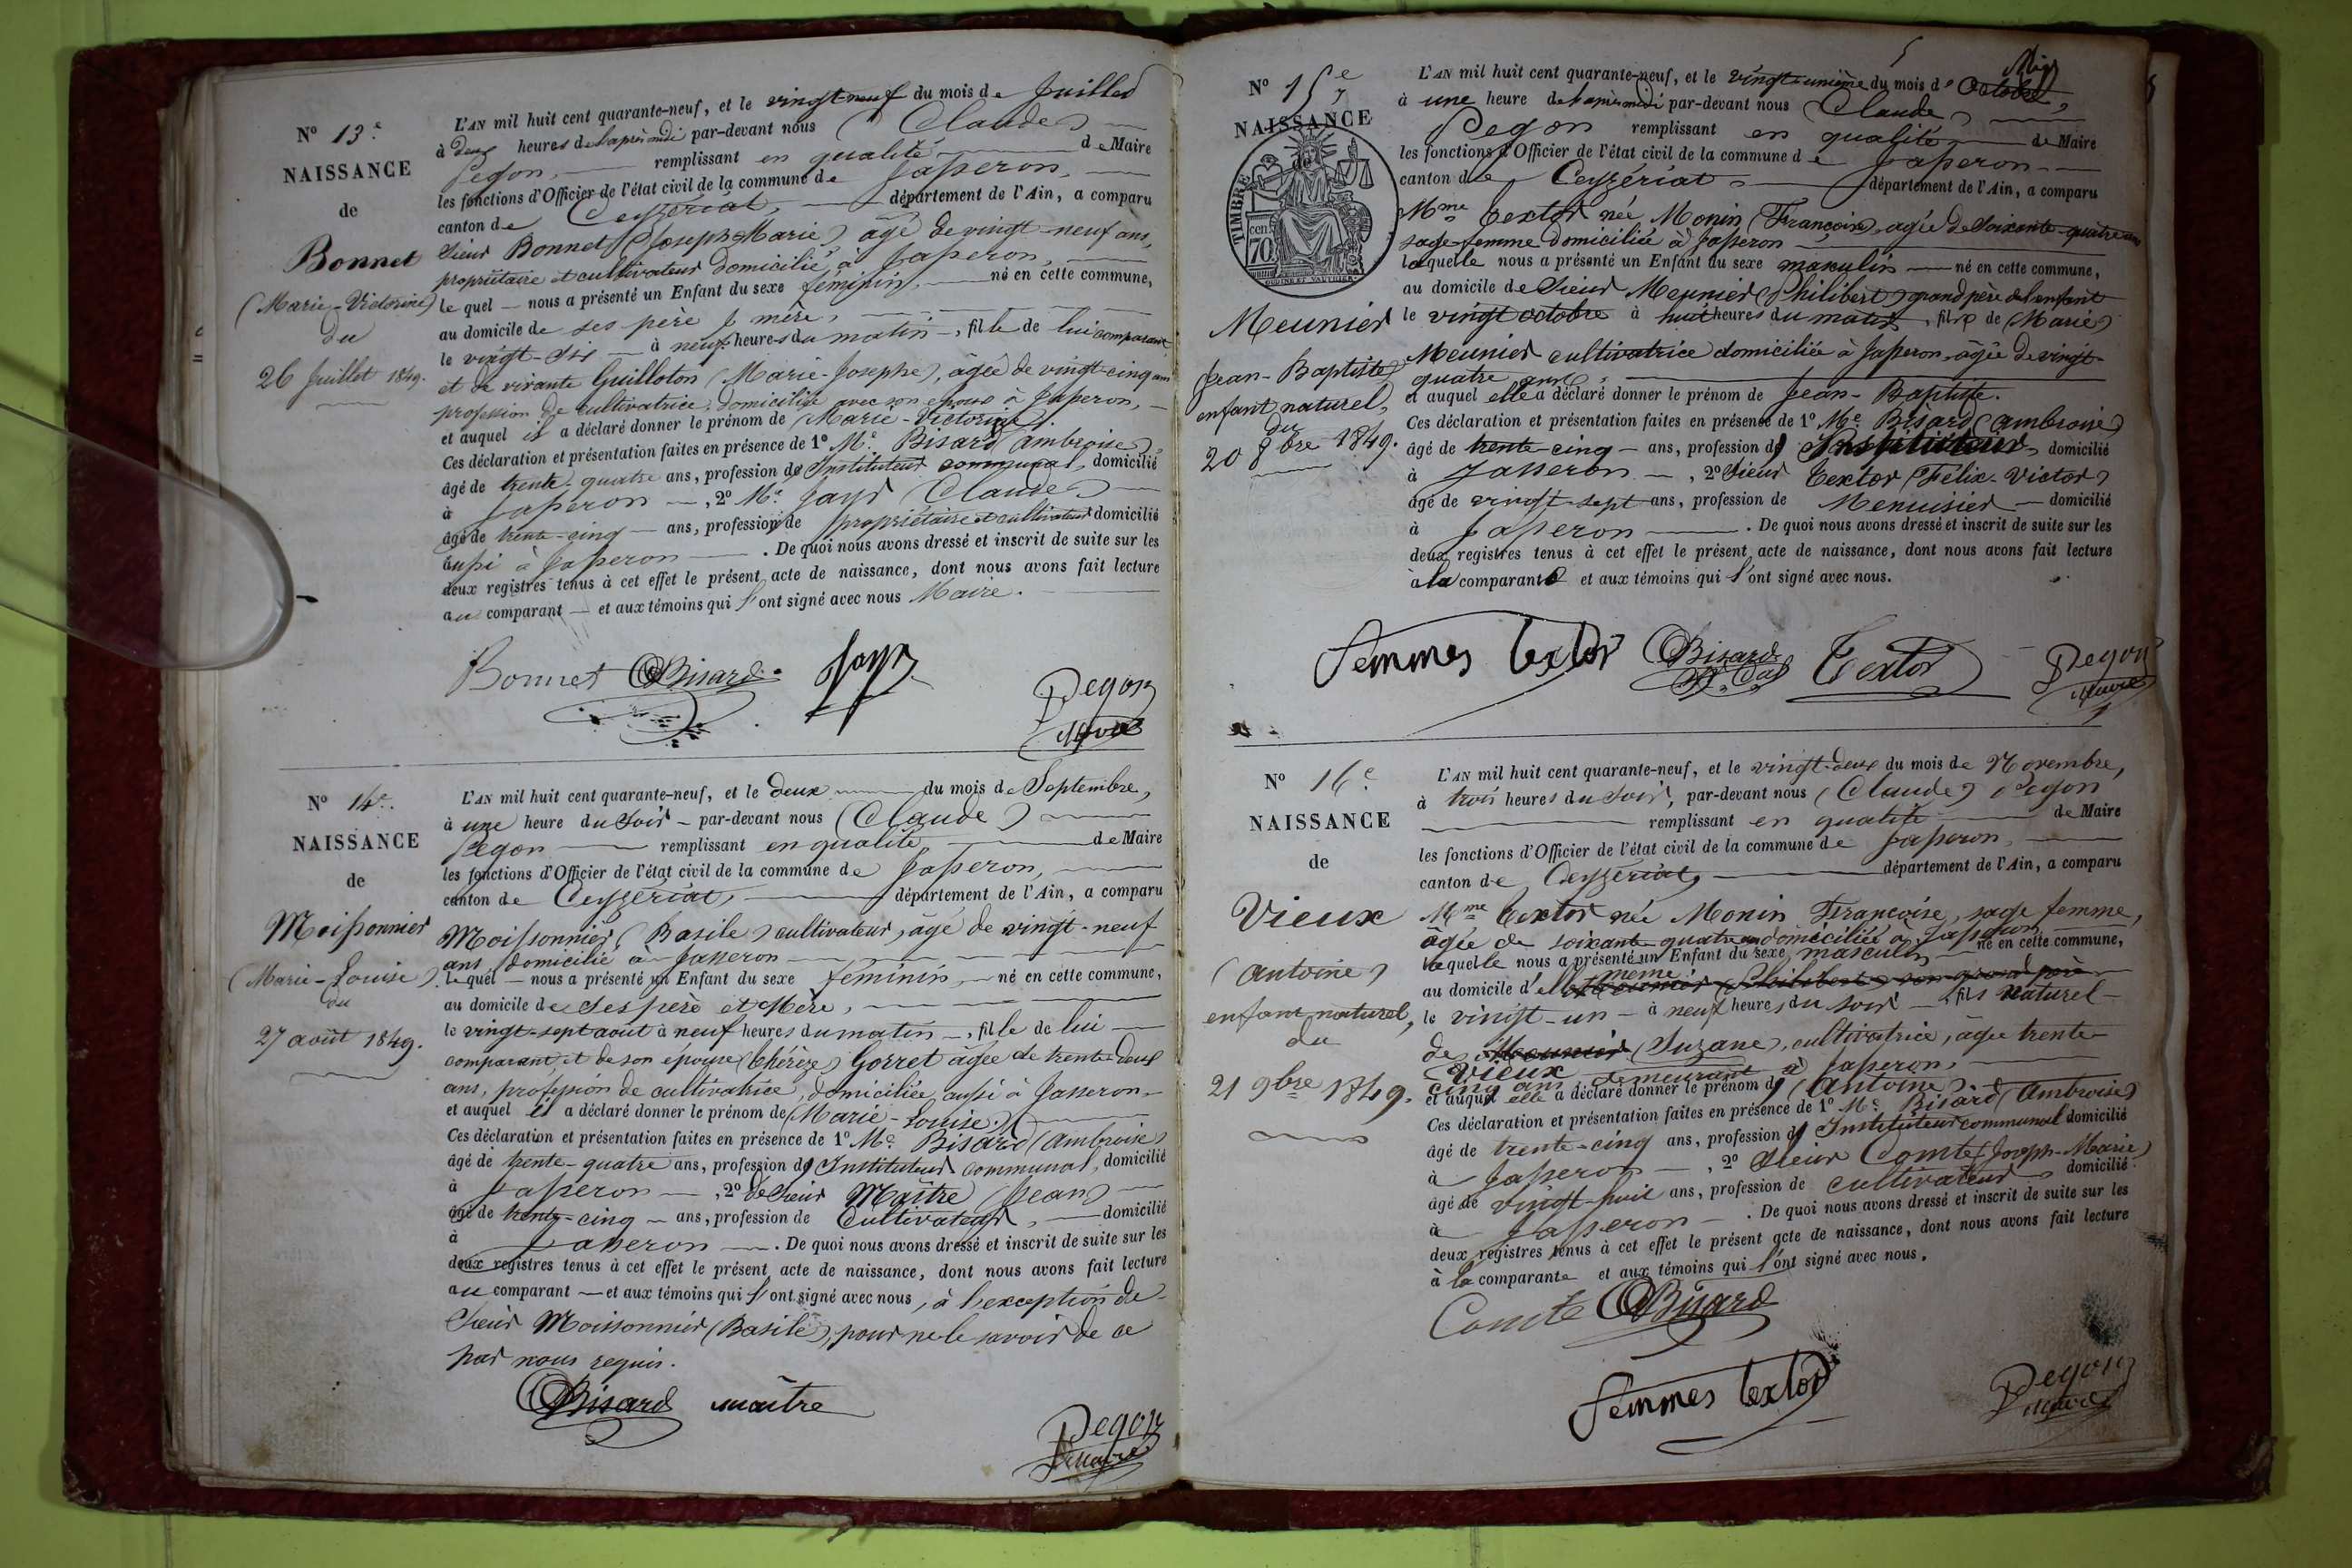 N° 13e
NAISSANCE
de
Bonnet
(Marie-Victorine)
du
26 Juillet 1849.
L'AN mil huit cent quarante-neuf, et le vingt neuf du mois de Juillet
à deux heures de l'après midi par-devant nous (Claude)
Pegon, remplissant en qualité de Maire
les fonctions d'Officier de l'état civil de la commune de Jasseron,
canton de Ceyzériat, département de l'Ain, a comparu
Sieur Bonnet (Joseph-Marie) âgé de vingt-neuf ans,
propriétaire et cultivateur domicilié à Jasseron,
le quel nous a présenté un Enfant du sexe féminin, né en cette commune,
au domicile de ses père & mère,
le vingt-six à neuf heures du matin, fille de lui comparant,
et de vivante Guilloton (Marie-Josephe), âgée de vingt-cinq ans
profession de cultivatrice, domiciliée avec son epoux à Jasseron,
et auquel il a déclaré donner le prénom de (Marie-Victorine).
Ces déclaration et présentation faites en présence de 1° Mr. Bisard (Ambroise)
âgé de trente-quatre ans, profession de Instituteur communal, domicilié
à Jasseron, 2° Mr. Jayr (Claude)
âgé de trente-cinq ans, profession de propriétaire et cultivateur domicilié
aussi à Jasseron. De quoi nous avons dressé et inscrit de suite sur les
deux registres tenus à cet effet le présent acte de naissance, dont nous avons fait lecture
au comparant et aux témoins qui l'ont signé avec nous Maire.
Bonnet Bisard Jayr
Pegon
Maire
N° 14e.
NAISSANCE
de
Moissonnier
(Marie-Louise)
du
27 août 1849.
L'AN mil huit cent quarante-neuf, et le deux du mois de Septembre,
à une heure du soir par-devant nous (Claude)
Pegon remplissant en qualité de Maire
les fonctions d'Officier de l'état civil de la commune de Jasseron,
canton de Ceyzériat, département de l'Ain, a comparu
Moissonnier (Basile) cultivateur, âgé de vingt-neuf
ans domicilié à Jasseron
lequel nous a présenté un Enfant du sexe féminin, né en cette commune,
au domicile de ses père et Mère,
le vingt-sept août à neuf heures du matin, fille de lui
comparant et de son épouse (Thérèze) Gorret âgée de trente-deux
ans, profession de cultivatrice, domiciliée aussi à Jasseron
et auquel il a déclaré donner le prénom de (Marie-Louise).
Ces déclaration et présentation faites en présence de 1° Mr. Bisard (Ambroise)
âgé de trente-quatre ans, profession de Instituteur Communal, domicilié
à Jasseron, 2° de Sieur Maître (Jean)
âgé de trente-cinq ans, profession de Cultivateur, domicilié
à Jasseron. De quoi nous avons dressé et inscrit de suite sur les
deux registres tenus à cet effet le présent acte de naissance, dont nous avons fait lecture
au comparant et aux témoins qui l'ont signé avec nous, à l'exception de
Sieur Moissonnier (Basile), pour ne le savoir de ce
par nous requis.
Bisard maître
Pegon
Maire
N° 15e
NAISSANCE
de
TIMBRE
cen
70
Meunier
Jean-Baptiste
enfant naturel,
du
20 8bre 1849.
L'AN mil huit cent quarante-neuf, et le vingt-unième du mois d'Octobre,
à une heure de l'après midi par-devant nous (Claude)
Pegon remplissant en qualité de Maire
les fonctions d'Officier de l'état civil de la commune de Jasseron
canton de Ceyzériat département de l'Ain, a comparu
Mme Textor née Monin (Françoise), agée de soixante-quatre ans
sage-femme domiciliée à Jasseron
laquelle nous a présenté un Enfant du sexe masculin né en cette commune,
au domicile de Sieur Meunier (Philibert) grand père de l'enfant
le vingt octobre à huit heures du matin, fils de (Marie)
Meunier cultivatrice domiciliée à Jasseron, âgée de vingt-
quatre ans,
et auquel elle a déclaré donner le prénom de Jean-Baptiste.
Ces déclaration et présentation faites en présence de 1° Mr. Bisard (Ambroise)
âgé de trente-cinq ans, profession d'Instituteur, domicilié
à Jasseron, 2° Sieur Textor (Félix-Victor)
âgé de vingt-sept ans, profession de Menuisier domicilié
à Jasseron. De quoi nous avons dressé et inscrit de suite sur les
deux registres tenus à cet effet le présent acte de naissance, dont nous avons fait lecture
à la comparante et aux témoins qui l'ont signé avec nous.
femmes textor Bisard Textor Pegon
Maire
N° 16e
NAISSANCE
de
Vieux
(Antoine)
enfant naturel,
du
21 9bre 1849.
L'AN mil huit cent quarante-neuf, et le vingt-deux du mois de Novembre,
à trois heures du soir, par-devant nous (Claude) Pegon
remplissant en qualité de Maire
les fonctions d'Officier de l'état civil de la commune de Jasseron,
canton de Ceyzériat, département de l'Ain, a comparu
Mme Textor née Monin Françoise, sage femme,
âgée de soixante quatre ans domiciliée à Jasseron
laquelle nous a présenté un Enfant du sexe masculin né en cette commune,
au domicile d'elle même Meunier (Philibert) son grand père
le vingt-un à neuf heures du soir, fils naturel
de Meunier (Suzane), cultivatrice, âgée trente
Vieux
cinq ans demeurant à Jasseron,
et auquel elle a déclaré donner le prénom d' (Antoine).
Ces déclaration et présentation faites en présence de 1° Mr. Bisard (Ambroise)
âgé de trente-cinq ans, profession d'Instituteur communal domicilié
à Jasseron, 2° Sieur Comte (Joseph-Marie)
âgé de vingt-huit ans, profession de cultivateur domicilié
à Jasseron. De quoi nous avons dressé et inscrit de suite sur les
deux registres tenus à cet effet le présent acte de naissance, dont nous avons fait lecture
à la comparante et aux témoins qui l'ont signé avec nous.
Comte Bisard
femmes textor
Pegon
Maire